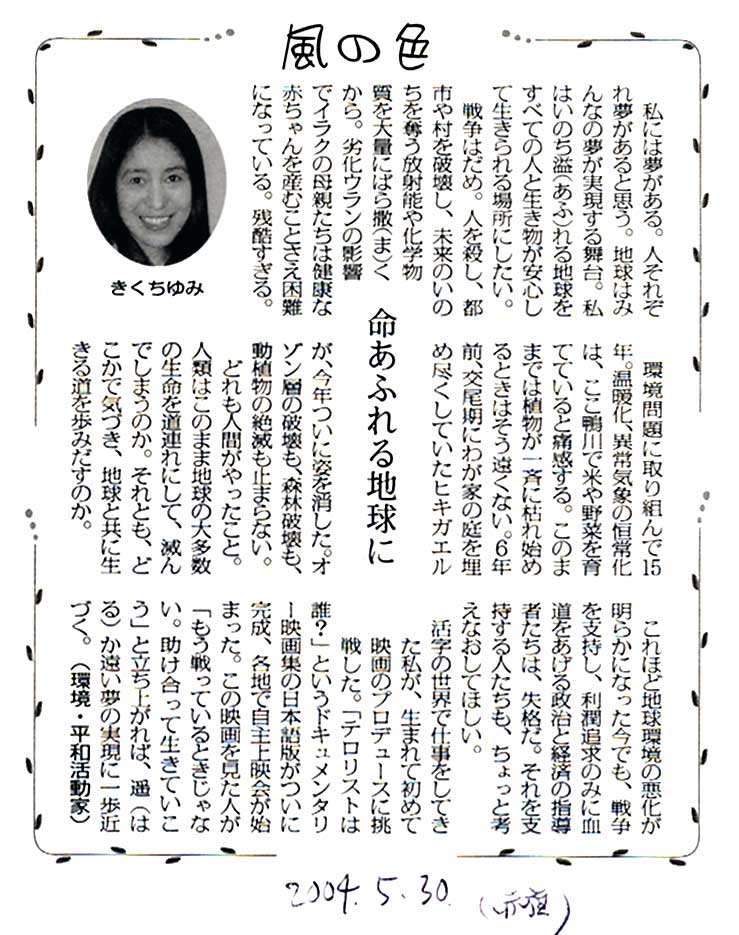 風の色
私には夢がある。人それぞ
れ夢があると思う。地球はみ
んなの夢が実現する舞台。私
はいのち溢(あふ)れる地球を
すべての人と生き物が安心し
て生きられる場所にしたい。
戦争はだめ。人を殺し、都
市や村を破壊し、未来のいの
ちを奪う放射能や化学物
質を大量にばら撒(ま)く
から。劣化ウランの影響
でイラクの母親たちは健康な
赤ちゃんを産むことさえ困難
になっている。残酷すぎる。
きくちゆみ
命あふれる地球に
環境問題に取り組んで15
年。温暖化、異常気象の恒常化
は、ここ鴨川で米や野菜を育
てていると痛感する。このま
までは植物が一斉に枯れ始め
るときはそう遠くない。6年
前、交尾期にわが家の庭を埋
め尽くしていたヒキガエル
が、今年ついに姿を消した。オ
ゾン層の破壊も、森林破壊も、
動植物の絶滅も止まらない。
どれも人間がやったこと。
人類はこのまま地球の大多数
の生命を道連れにして、滅ん
でしまうのか。それとも、ど
こかで気づき、地球と共に生
きる道を歩みだすのか。
これほど地球環境の悪化が
明らかになった今でも、戦争
を支持し、利潤追求のみに血
道をあげる政治と経済の指導
者たちは、失格だ。それを支
持する人たちも、ちょっと考
えなおしてほしい。
活字の世界で仕事をしてき
た私が、生まれて初めて
映画のプロデュースに挑
戦した。「テロリストは
誰?」というドキュメンタリ
ー映画集の日本語版がついに
完成、各地で自主上映会が始
まった。この映画を見た人が
「もう戦っているときじゃな
い。助け合って生きていこ
う」と立ち上がれば、遥(は
る)か遠い夢の実現に一歩近
づく。(環境・平和活動家)
2004.5.30.
(赤旗)